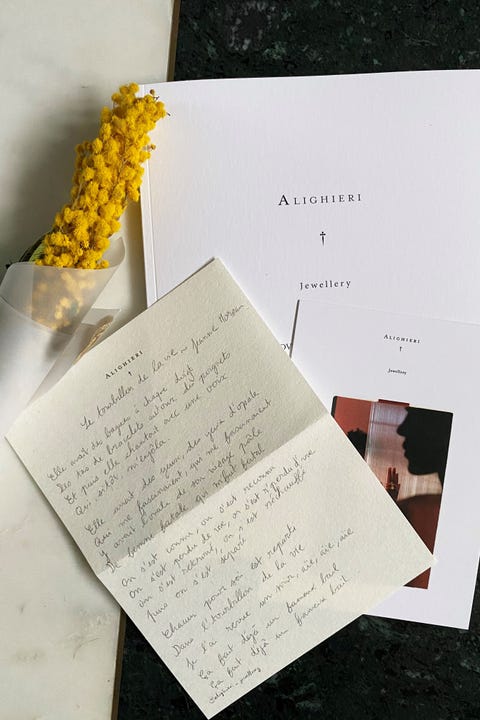 ALIGHIERI
†
Jewellery
ALIGHIERI
†
Jewellery
ALIGHIERI
Le tourbillon de la vie ~ Jeanne Moreau
Elle avait des bagues à chaque doigt
Des tas de bracelets autour des poignets
Et puis elle chantait avec une voix
Qui sitôt m'enjôla
Elle avait des yeux, des yeux d'opale
Qui me fascinaient, qui me fascinaient
Y avait l'ovale de ton visage pâle
De femme fatale qui m'fut fatal
On s'est connu, on s'est reconnu
On s'est perdu de vue, on s'est r'perdu d'vue
On s'est retrouvé, on s'est réchauffé
Puis on s'est séparé
Chacun pour soi est reparti
Dans l'tourbillon de la vie
Je l'ai revue un soir, aïe, aïe, aïe
Ça fait déjà un fameux bail
Ça fait déjà un fameux bail